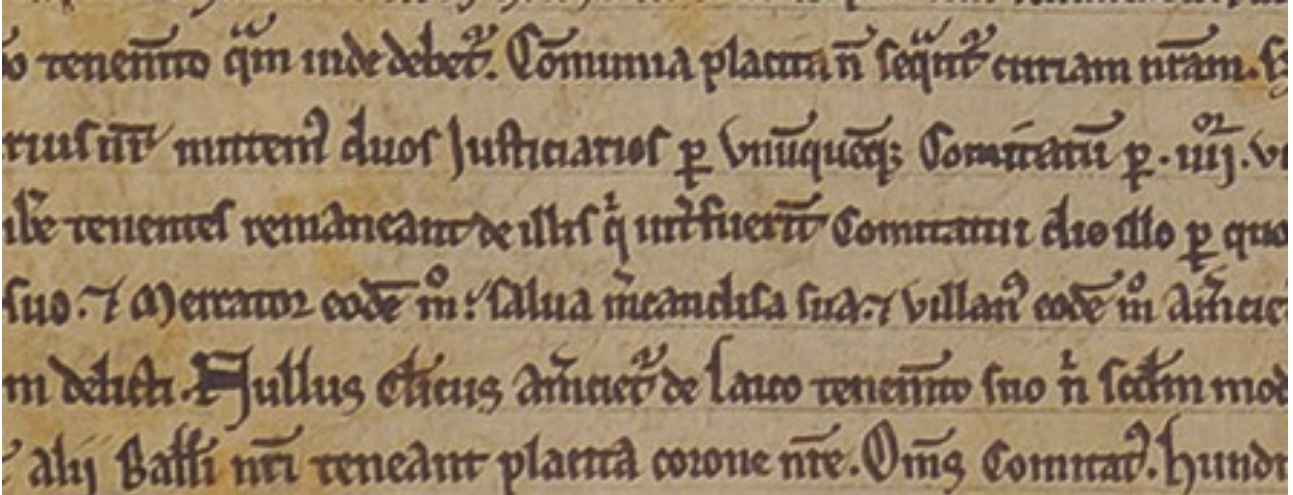 tenem̅to qͣm inde debetᷣ. Co̅munia placita n̅ seqͣntᷣ curiam nr̅am.
rius nr̅ mittemꝰ duos Justiciarios ꝑ Vnu̅que̅qꝫ Comitatu̅ ꝑ .iiijᵒʳ.
tenentes remaneant de illis qͥ int̾fuer̅t Comitatui dio illo ꝑ quo
suo. ⁊ Mercator eode̅ mᵒ: salua m̾candisa sua. ⁊ villanꝰ eode̅ mᵒ am̾ciet
m delicti. Nullus cl̅icus am̾cietᷣ de Laico tenem̅to suo n̾ scd̅m mod
alij Ball̅i nr̅i teneant placita corone nr̅e. Om̅s Comitatꝰ. hundr